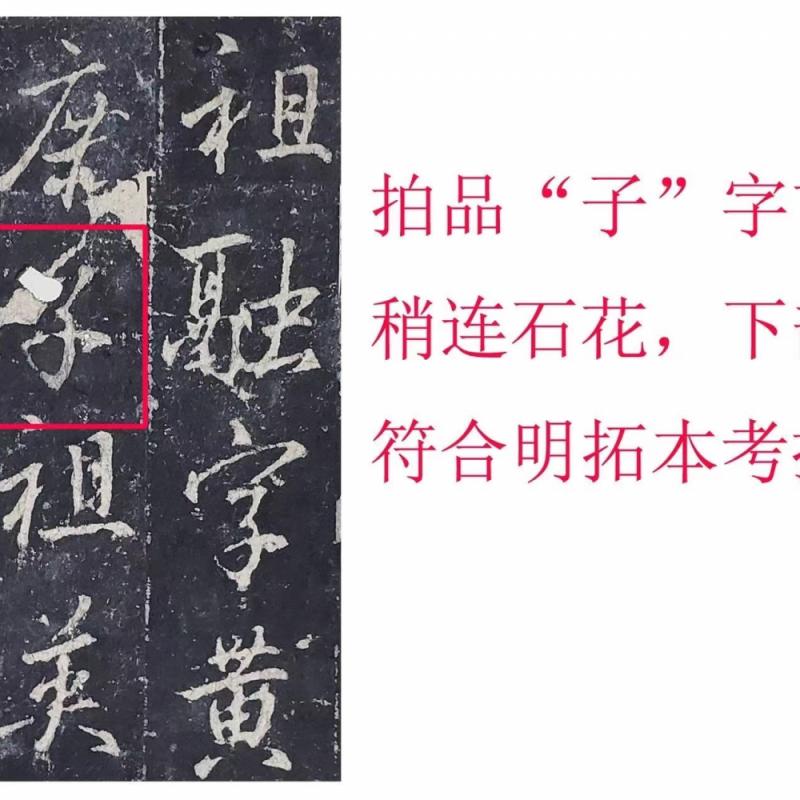 祖融字黄
康子祖英
拍品“子”字
稍连石花，下
符合明拓本考